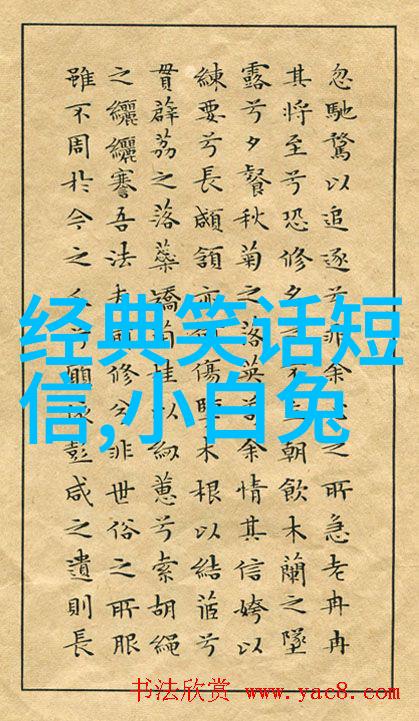 忽馳騖以追逐兮非余之所急老冉冉
其將至兮恐修不立朝飲木蘭之墜
露兮夕餐秋菊之落英余情其信姱以
練要兮長顑頷亦傷木根以結茝兮
貫薜荔之落蘂矯菌桂以紉蕙兮索胡繩
之纚纚謇吾法前修兮非世俗之所服
雖不周於今之人兮願彭咸之遺則長
经典笑话短
信,小白兔
书法欣赏 www.yac8.com